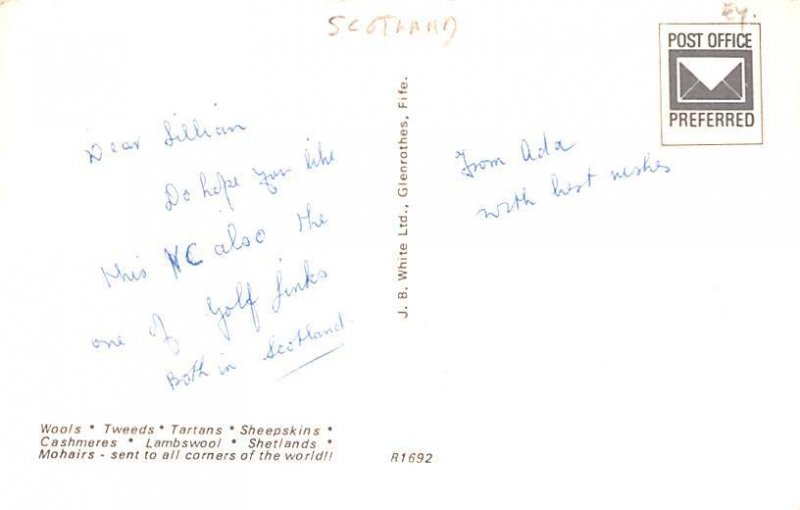 SCOTLAND
Ey.
POST OFFICE
PREFERRED
Dear Lillian
Do hope you like
this VC also the
one of Golf Links
Both in Scotland
J. B. White Ltd., Glenrothes, Fife.
From Ada
with best wishes
Wools * Tweeds * Tartans * Sheepskins *
Cashmeres * Lambswool * Shetlands *
Mohairs - sent to all corners of the world!!
R1692